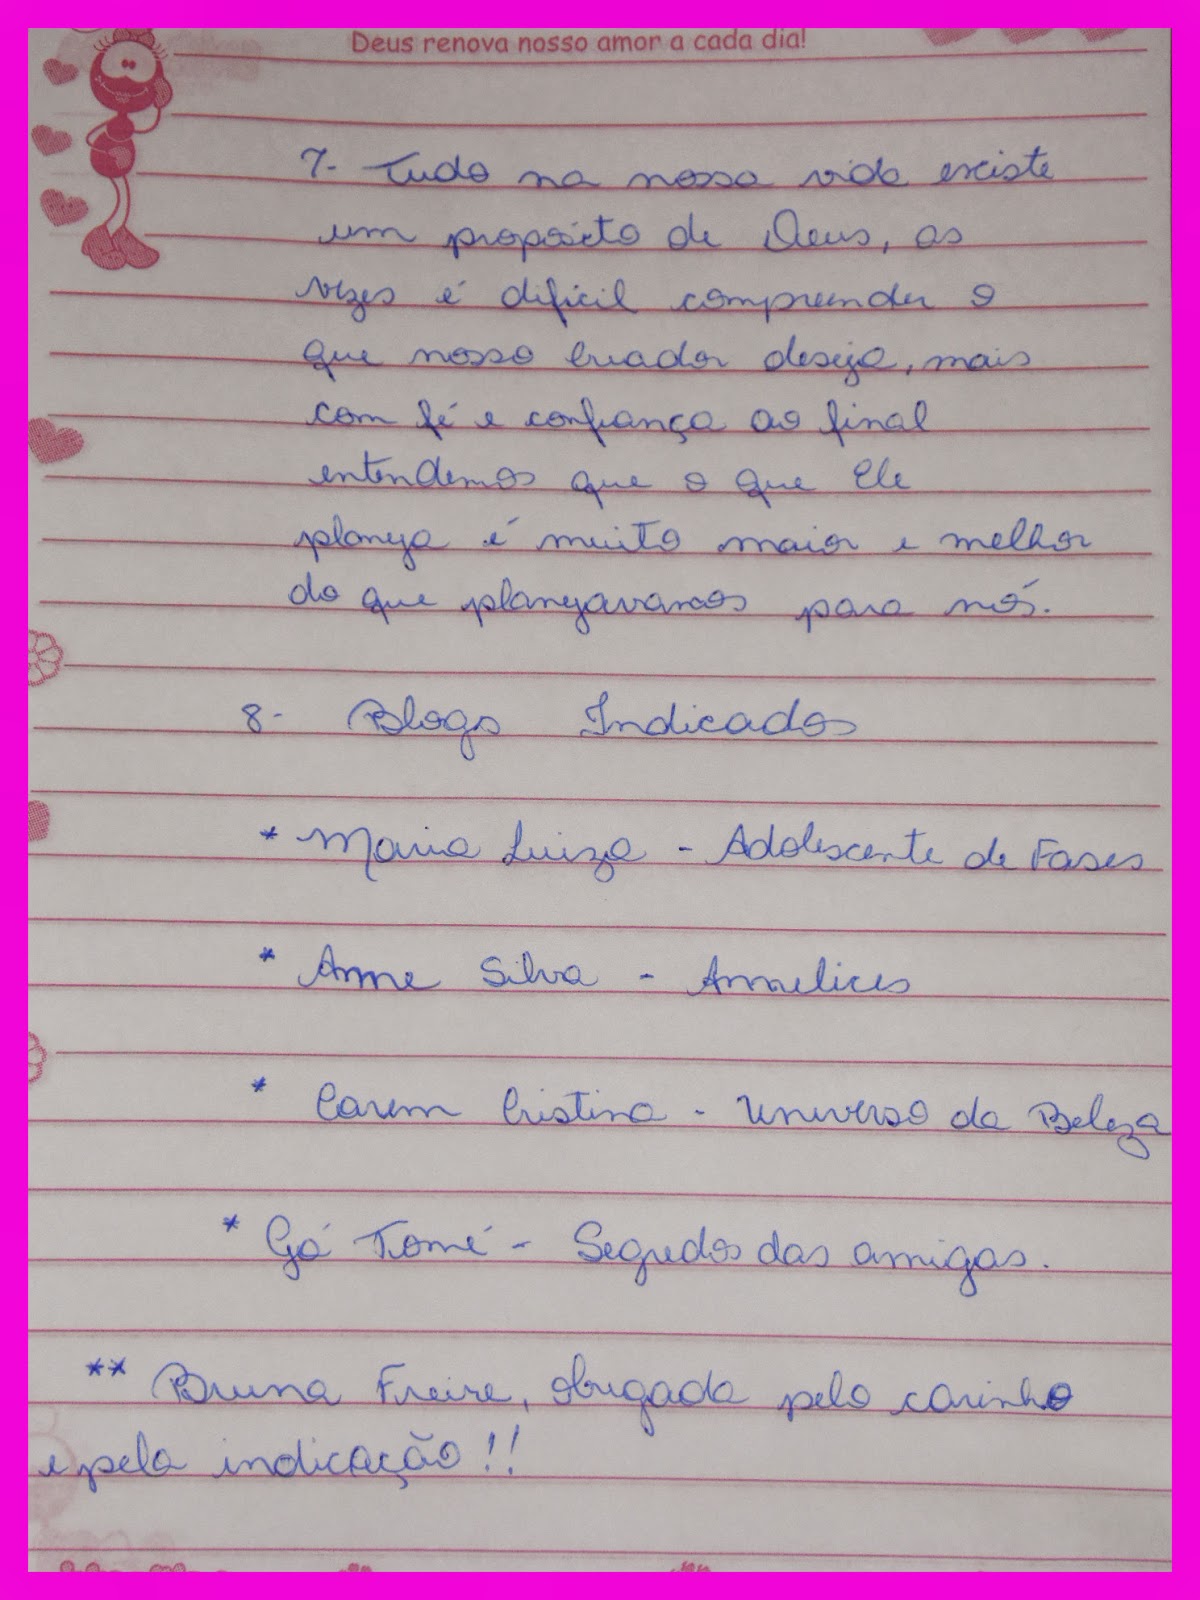 Deus renova nosso amor a cada dia!
7- Tudo na nossa vida existe
um propósito de Deus, as
vezes é difícil compreender o
que nosso Criador deseja, mais
com fé e confiança ao final
entendemos que o que Ele
planeja é muito maior e melhor
do que planejavamos para nós.
8- Blogs Indicados
* Maria Luiza - Adolescente de Fases
* Anne Silva - Annelices
* Carem Cristina - Universo da Beleza
* Gá Tomé - Segredos das amigas.
** Bruna Freire, obrigada pelo carinho
e pela indicação!!